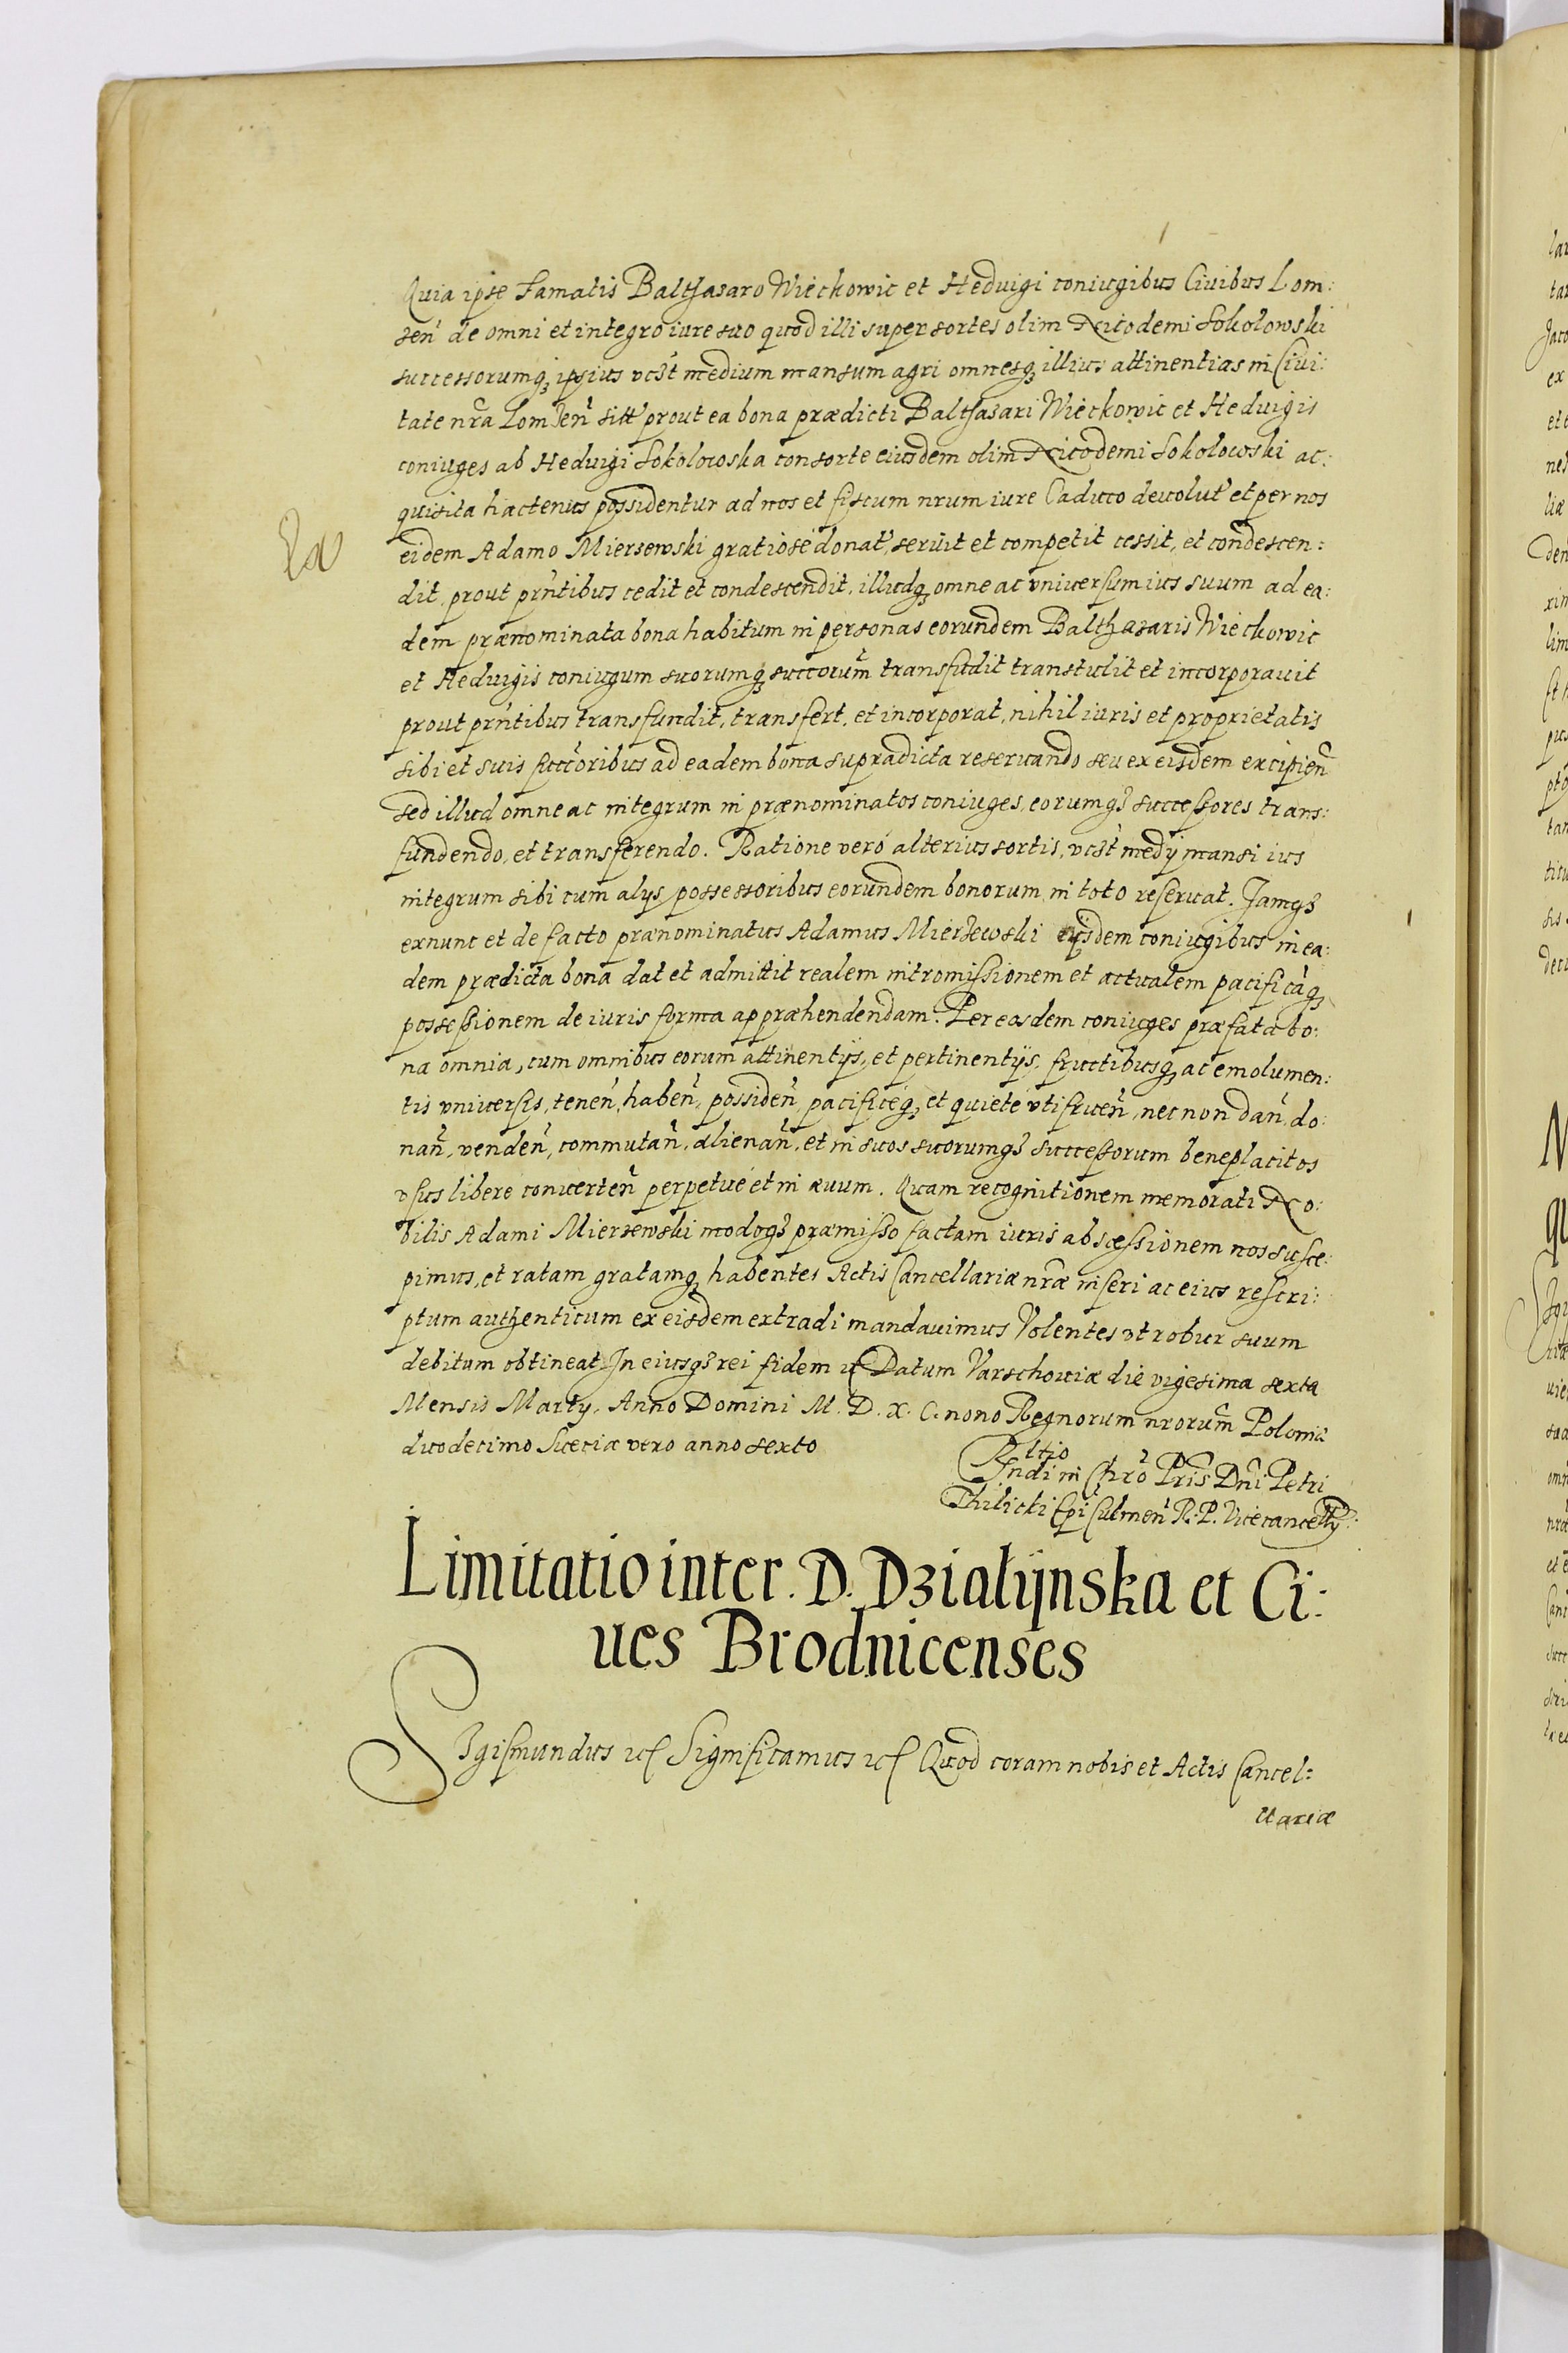 Quia ipse Famatis Balthasaro Wieckowic et Hedvigi coniugibus Ciuibus Lom:
zeñ de omni et integro iure suo quod illi super sortes olim Nicodemi Sokolowski
successorumq; ipsius vczt medium mansum agri omnesq; illius attinentias in Ciui:
tate nr̃a Lomzeñ sitt prout ea bona prædicti Balthasari Wieckowic et Hedvigis
coniuges ab Hedvigi Sokolowska consorte eiusdem olim Nicodemi Sokolowski ac:
quisita hactenus possidentur ad nos et fiscum nrum iure Caduco deuolut et per nos
eidem Adamo Miersewski gratiosé donat, seruit et competit cessit, et condescen:
dit, prout prñtibus cedit et condescendit, illudq; omne ac vniuersum ius suum ad ea:
dem prænominata bona habitum in personas eorundem Balthasaris Wieckowic
et Hedvigis coniugum suorumq; succorum̃ transfudit transtulit et incorporauit
prout prñtibus transfundit, transfert, et incorporat, nihil iuris et proprietatis
sibi et suis succoribus ad eadem bona supradicta reseruando seu ex eisdem excipieñ
sed illud omne ac integrum in prænominatos coniuges, eorumq; successores trans:
fundendo, et transferendo. Ratione veró alterius sortis, vczt medy mansi ius
integrum sibi cum alys possessoribus eorundem bonorum in toto reseruat. Jamq;
exnunc et de facto prænominatus Adamus Mierzewski eisdem coniugibus in ea:
dem prædicta bona dat et admittit realem intromissionem et actualem pacificaq;
possessionem de iuris forma appræhendendam. Per eosdem coniuges præfata bo:
na omnia, cum omnibus eorum attinentÿs, et pertinentÿs, fructibusq; ac emolumen:
tis vniuersis, teneñ, habeñ, possideñ, pacificéq; et quieté vtifrueñ, nec non dañ, do:
nañ, vendeñ, commutañ, alienañ, et in suos suorumq; successorum beneplacitos
vsus libere conuerteñ perpetué et in æuum. Quam recognitionem memorati No:
bilis Adami Miersewski modoq; præmisso factam iuris abscessionem nos susce:
pimus, et ratam gratamq; habentes Actis Cancellariæ nræ inseri ac eius rescri:
ptum authenticum ex eisdem extradi mandauimus Volentes vt robur suum
debitum obtineat, In eiusq; rei fidem etc Datum Varschouiæ die vigesima sexta
Mensis Marty, Anno Domini M. D. X. C. nono Regnorum nrorum̃ Poloniæ
duodecimo Sueciæ vero anno sexto
Rltio
Rndi in Chrõ Pris Dni Petri
Thilicki Epi Culmeñ R. P. Vicecancelly.
Limitatio inter. D. Dzialijnska et Ci:
ues Brodnicenses
SIgismundus etc Significamus etc Quod coram nobis et Actis Cancel:
llariæ